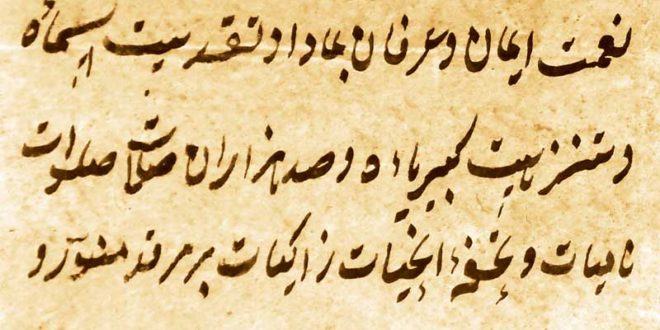 نعمت ایمان و عرفان بما داد تقدیست اسمائه
و تنزیهت کبریاءه و صد هزاران صلات صلوات
نامیات و تحف التحیات زاکیات بر مرقد منور و